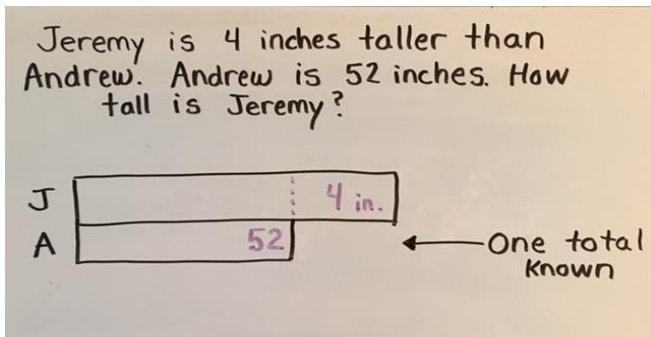 Jeremy is 4 inches taller than
Andrew. Andrew is 52 inches. How
tall is Jeremy?
J 4 in.
A 52
One total
known